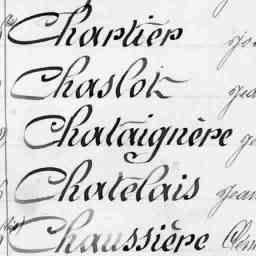 Chartier
Chaslot
Chataignère
Chatelais
Chaussière Clém